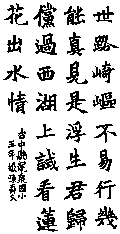 世路崎嶇不易行幾
能真見是浮生君歸
儻過西湖上試看蓮
花出水情